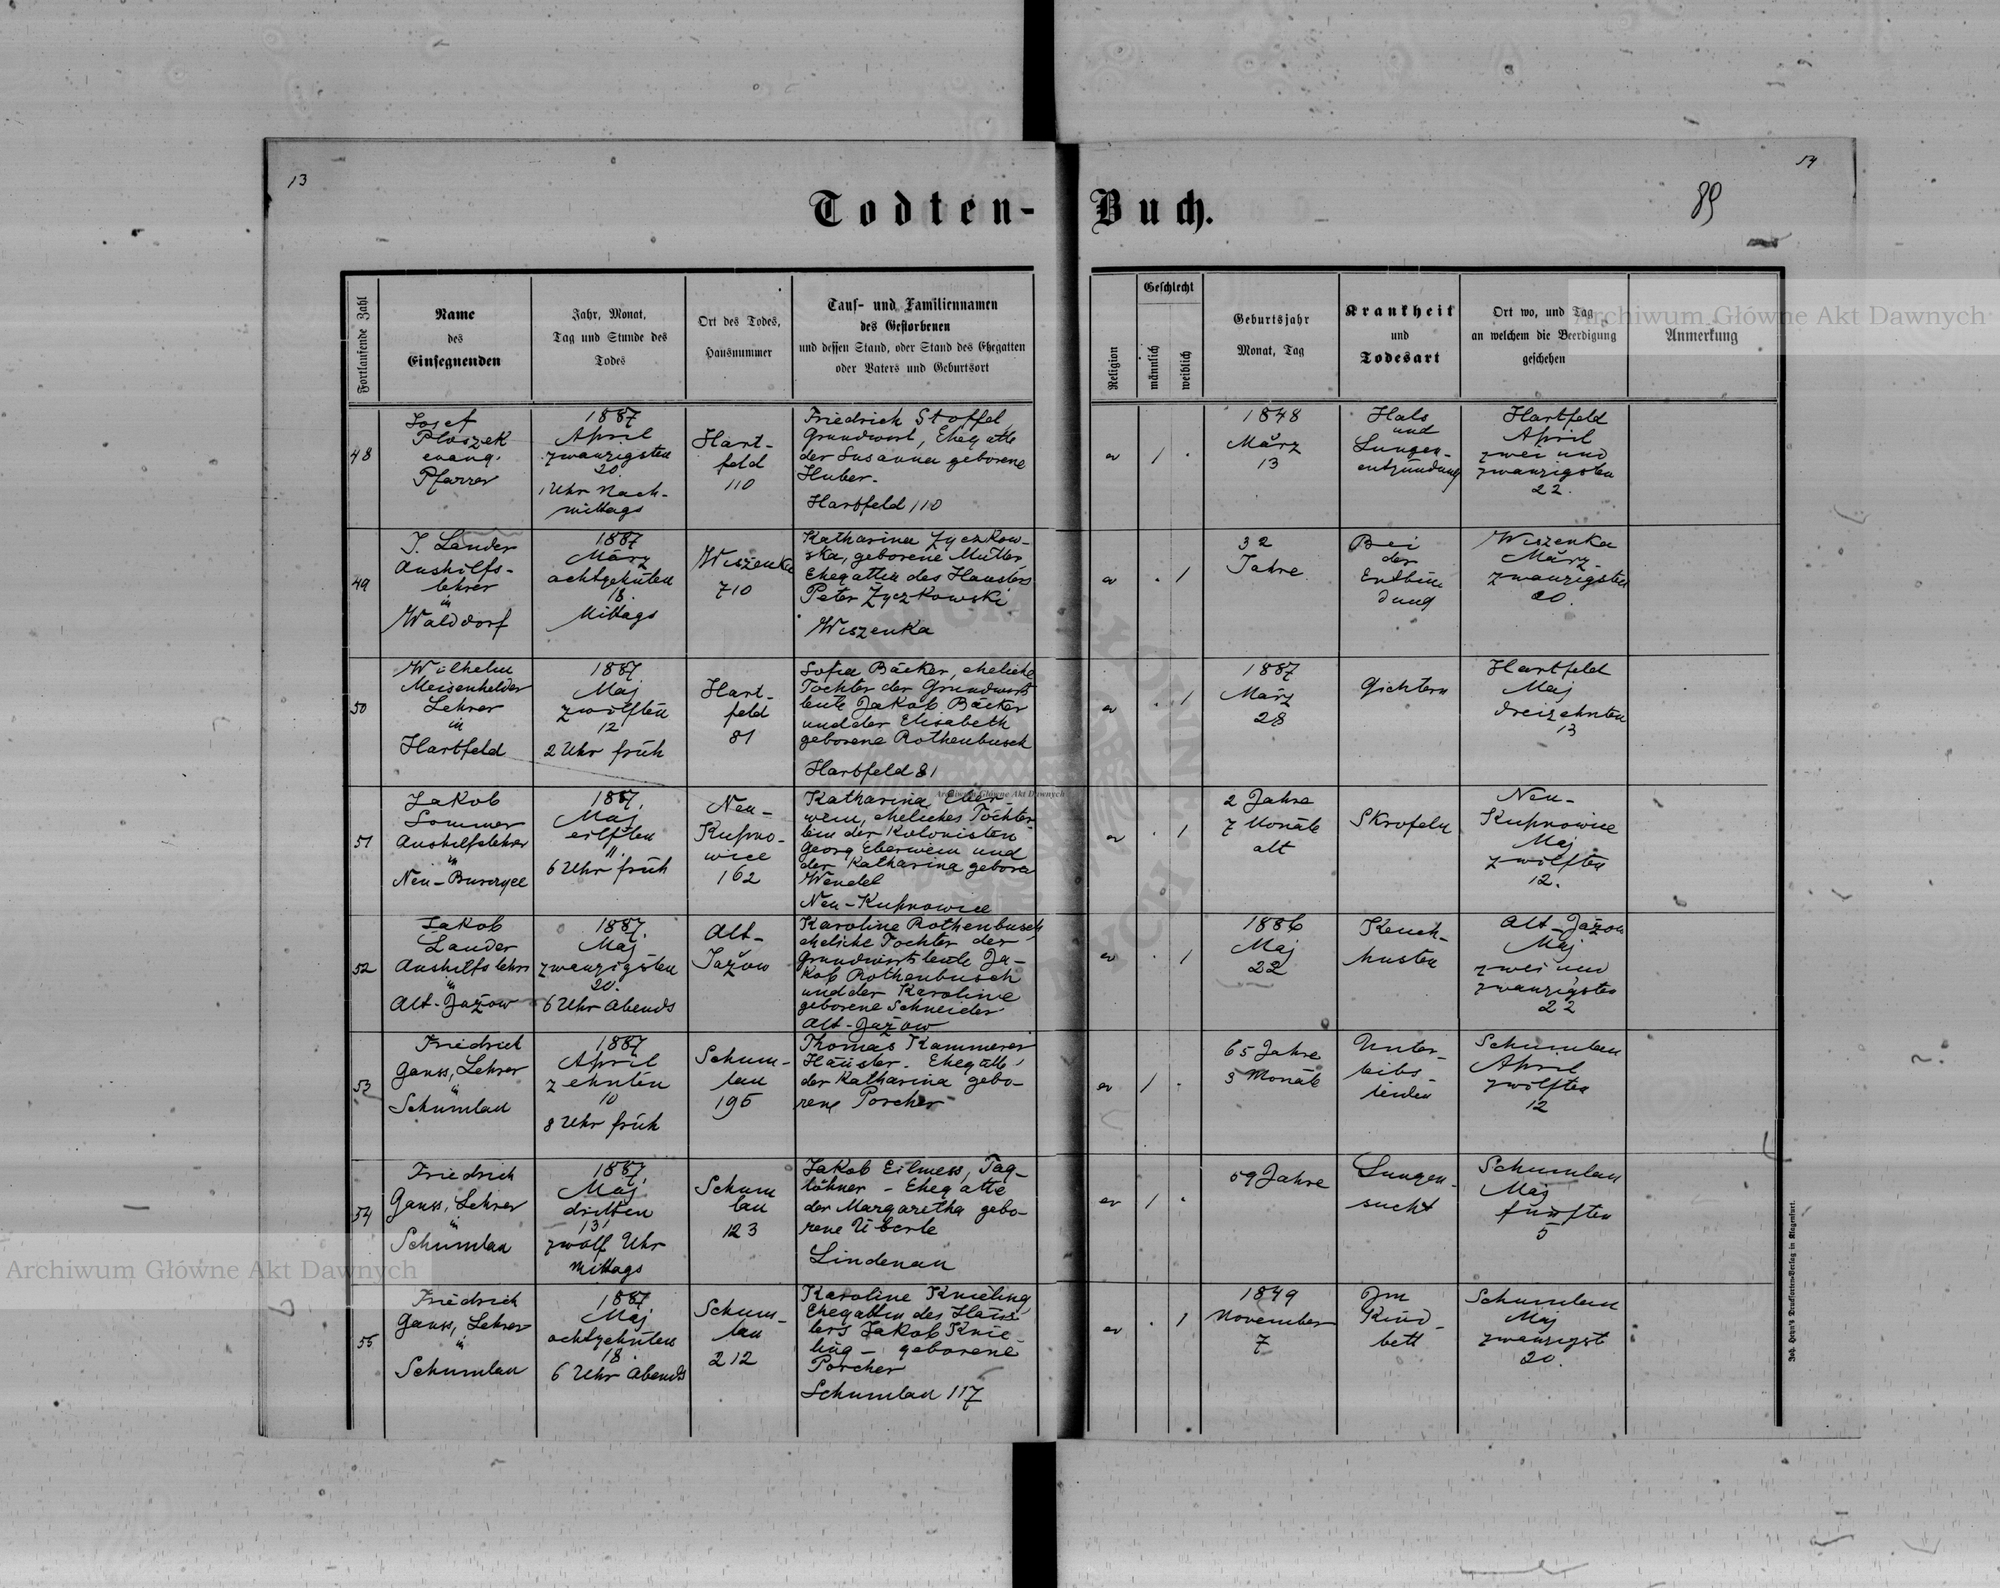 13
54
89
Todten-Buch.
Fortlaufende Zahl
Name
des
Einsegnenden
Jahr, Monat,
Tag und Stunde des
Todes
Ort des Todes,
Hausnummer
Tauf- und Familiennamen
des Gestorbenen
und dessen Stand, oder Stand des Ehegatten
oder Vaters und Geburtsort
Religion
Geschlecht
männlich
weiblich
Geburtsjahr
Monat, Tag
Krankheit
und
Todesart
Ort wo, und Tag
an welchem die Beerdigung
geschehen
Anmerkung
48
Josef
Ploszek
evang.
Pfarrer
1887
April
zwanzigsten
20
1 Uhr Nach-
mittags
Hart-
feld
110
Friedrich Stoffel,
Grundwirt, Ehegatte
der Susanna geborene
Huber.
Hartfeld 110
ev
1
1848
März
13
Hals
und
Lungen-
entzündung
Hartfeld
April
zwei und
zwanzigsten
22.
49
J. Lander
Aushilfs-
lehrer
in
Walddorf
1887
März
achtzehnten
18.
Mittags
Wiszenka
710
Katharina Zyczkow-
ska, geborene Mutler
Ehegattin des Häuslers
Peter Zyczkowski
Wiszenka
ev
1
32
Jahre
Bei
der
Entbin
dung
Wiszenka
März
zwanzigsten
20.
50
Wilhelm
Meisenhelder
Lehrer
in
Hartfeld
1887
Maj
zwölften
12
2 Uhr früh
Hart-
feld
81
Sofia Bäcker, eheliche
Tochter der Grundwirts
leute Jakob Bäcker
und der Elisabeth
geborene Rothenbusch
Hartfeld 81
ev
1
1887
März
28
Gichtern
Hartfeld
Maj
dreizehnten
13
51
Jakob
Sommer
Aushilfslehrer
in
1887.
Maj
eilften
11
6 Uhr früh
Neu-
Kupno-
wice
162
Katharina Eber-
wein, eheliches Töchter
lein der Kolonisten
Georg Eberwein und
der Katharina geboren
Wendel
Neu-Kupnowice
ev
1
2 Jahre
7 Monate
alt
Skrofeln
Neu-
Kupnowice
Maj
zwölften
12.
52
Jakob
Lander
Aushilfslehrer
in
Alt-Jażow
1887.
Maj
zwanzigsten
20.
6 Uhr Abends
Alt-
Jażow
Karoline Rothenbusch
eheliche Tochter der
Grundwirtsleute Ja-
kob Rothenbusch
und der Karoline
geborene Schneider
Alt-Jażow
ev
1
1886
Maj
22
Keuch-
husten
Alt-Jażow
Maj
zwei und
zwanzigsten
22
53
Friedrich
Gauss, Lehrer
in
Schumlau
1887
April
zehnten
10
8 Uhr früh
Schum-
lau
195
Thomas Kammerer
Häusler. Ehegatte
der Katharina gebo-
rene Porcher
ev
1
65 Jahre
3 Monate
Unter-
leibs-
leiden
Schumlau
April
zwölften
12
54
Friedrich
Gauss, Lehrer
in
Schumlau
1887.
Maj
dritten
/3/
zwölf Uhr
Mittags
Schum
lau
123
Jakob Eilmess, Tag-
löhner - Ehegatte
der Margaretha gebo-
rene Überle
Lindenau
ev
1
59 Jahre
Lungen-
sucht
Schumlau
Maj
fünften
5
55
Friedrich
Gauss, Lehrer
in
Schumlau
1887.
Maj
achtzehnten
18.
6 Uhr Abends
Schum-
lau
212
Karoline Knieling
Ehegattin des Häus
lers Jakob Knie-
ling - geborene
Porcher
Schumlau 117
ev
1
1849
November
7
Im
Kind-
bett
Schumlau
Maj
zwanzigst
20.
Joh. Heyn's Drucksorten-Verlag in Klagenfurt.
Archiwum Główne Akt Dawnych
Archiwum Główne Akt Dawnych
Archiwum Główne Akt Dawnych